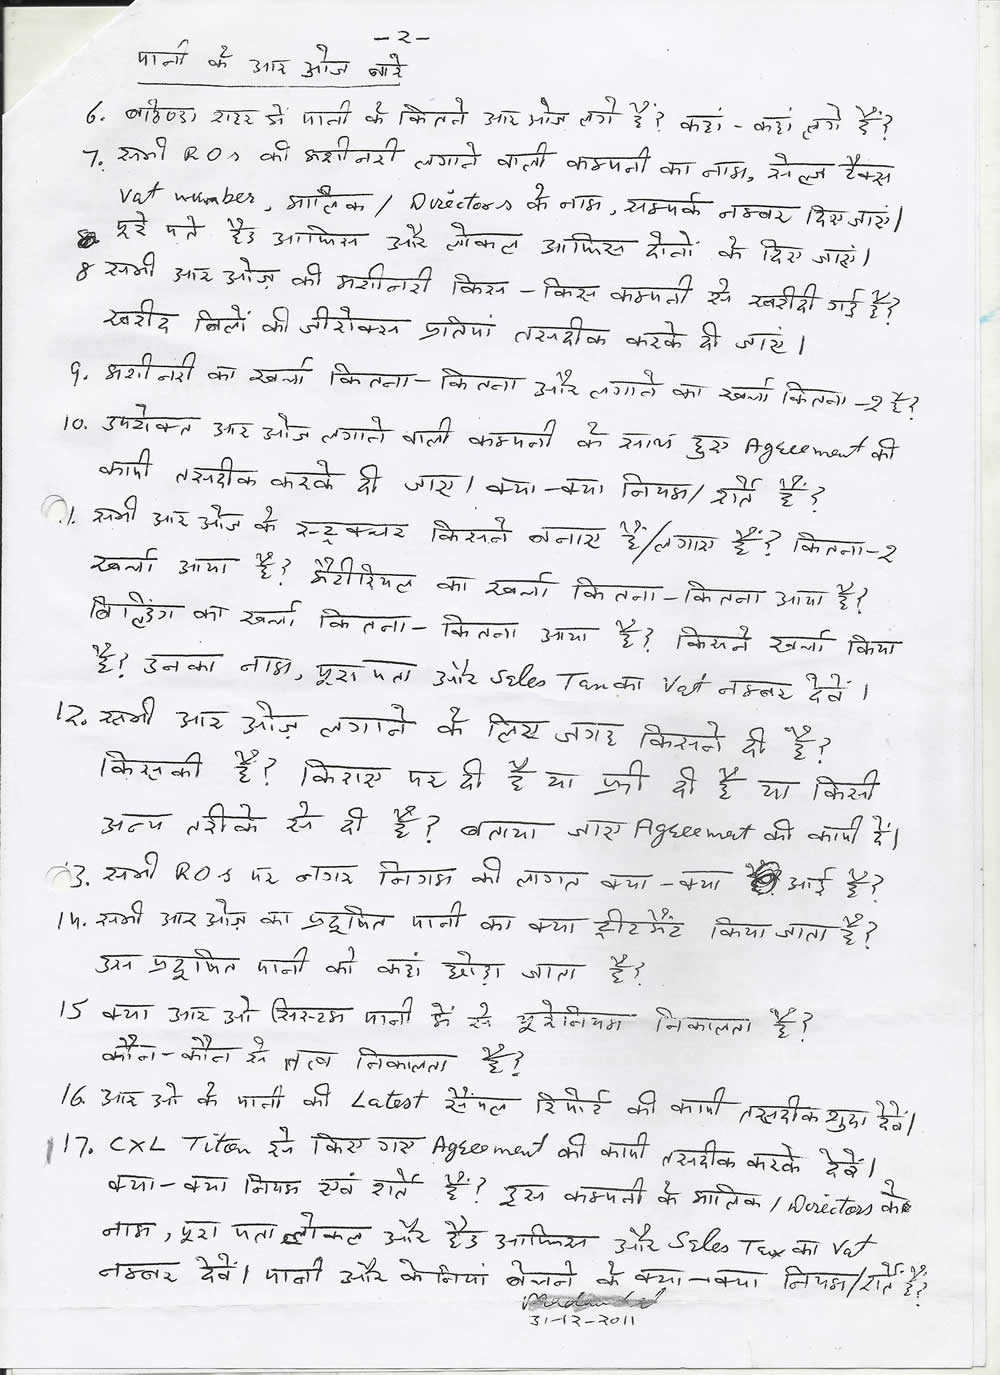 -२-
पानी के आर ओज बारे
6. बठिण्डा शहर में पानी के कितने आर ओज लगे हैं? कहां-कहां लगे हैं?
7. सभी ROs की मशीनरी लगाने वाली कम्पनी का नाम, सेल्ज टैक्स
Vat number, मालिक/Directors के नाम, सम्पर्क नम्बर दिए जाएं।
पूरे पते हैड आफिस और लोकल आफिस दोनों के दिए जाएं।
8 सभी आर ओज़ की मशीनरी किस-किस कम्पनी से खरीदी गई है?
खरीद बिलों की जीरोक्स प्रतियां तसदीक करके दी जाएं।
9. मशीनरी का खर्चा कितना-कितना और लगाने का खर्चा कितना-२ है?
10. उपरोक्त आर ओज लगाने वाली कम्पनी के साथ हुए Agreement की
कापी तसदीक करके दी जाए। क्या-क्या नियम/शर्तें हैं?
1. सभी आर ओज के स्ट्रक्चर किसने बनाए हैं/लगाए हैं? कितना-२
खर्चा आया है? मैटीरियल का खर्चा कितना-कितना आया है?
बिल्डिंग का खर्चा कितना-कितना आया है? किसने खर्चा किया
है? उनका नाम, पूरा पता और Sales Tax का Vat नम्बर देवें।
12. सभी आर ओज़ लगाने के लिए जगह किसने दी है?
किसकी है? किराए पर दी है या फ्री दी है या किसी
अन्य तरीके से दी है? बताया जाए Agreement की कापी दें।
3. सभी ROs पर नगर निगम की लागत क्या-क्या आई है?
14. सभी आर ओज़ का प्रदूषित पानी का क्या ट्रीटमैंट किया जाता है?
उस प्रदूषित पानी को कहां छोड़ा जाता है?
15 क्या आर ओ सिस्टम पानी में से यूरेनियम निकालता है?
कौन-कौन से तत्व निकालता है?
16. आर ओ के पानी की Latest सैंपल रिपोर्ट की कापी तसदीक शुदा देवें।
17. CXL Titen से किए गए Agreement की कापी तसदीक करके देवें।
क्या-क्या नियम एवं शर्तें हैं? इस कम्पनी के मालिक/Directors के
नाम, पूरा पता लोकल और हैड आफिस और Sales Tax का Vat
नम्बर देवें। पानी और केनियां बेचने के क्या-क्या नियम/शर्तें हैं?
31-12-2011